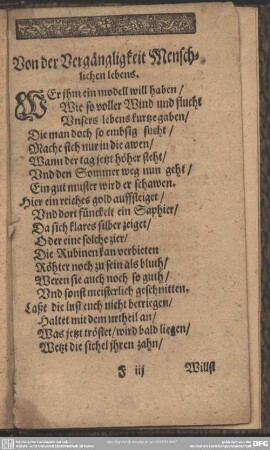 Von der Vergängligkeit Mensch-
lichen lebens.
WEr ihm ein modell will haben/
Wie so voller Wind und flucht
Vnsers lebens kurtze gaben/
Die man doch so embsig sucht/
Mache sich nur in die awen/
Wann der tag jetzt höher steht/
Vnd den Sommer weg nun geht/
Ein gut muster wird er schawen.
Hier ein reiches gold auffsteiget/
Vnd dort fünckelt ein Saphier/
Da sich klares silber zeiget/
Oder eine solche zier/
Die Rubinen kan verbieten
Röhter noch zu sein als bluth/
Weren sie auch noch so guth/
Vnd sonst meisterlich geschnitten.
Laßt die lust euch nicht betriegen/
Haltet mit dem urtheil an/
Was jetzt tröstet/wird bald liegen/
Wetzt die sichel jhren zahn/
F iij Willst